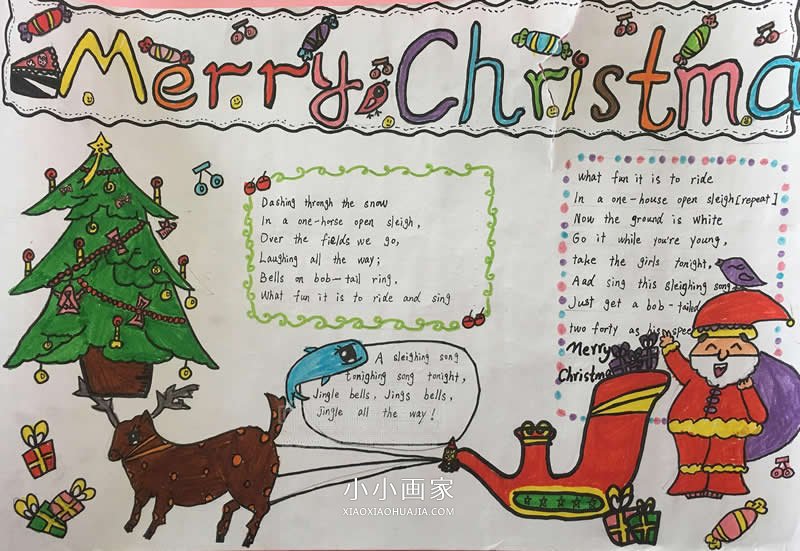 Merry Christma
Dashing through the snow
In a one-horse open sleigh,
Over the fields we go,
Laughing all the way;
Bells on bob-tail ring,
What fun it is to ride and sing
A sleighing song
tonighing song tonight,
Jingle bells, Jings bells,
jingle all the way!
what fun it is to ride
In a one-house open sleigh[repeat]
Now the ground is white
Go it while you're young,
take the girls tonight,
Aad sing this sleighing song
Just get a bob-tailed
two forty as his spee
Merry
Christmas
小小画家
XIAOXIAOHUAJIA.COM